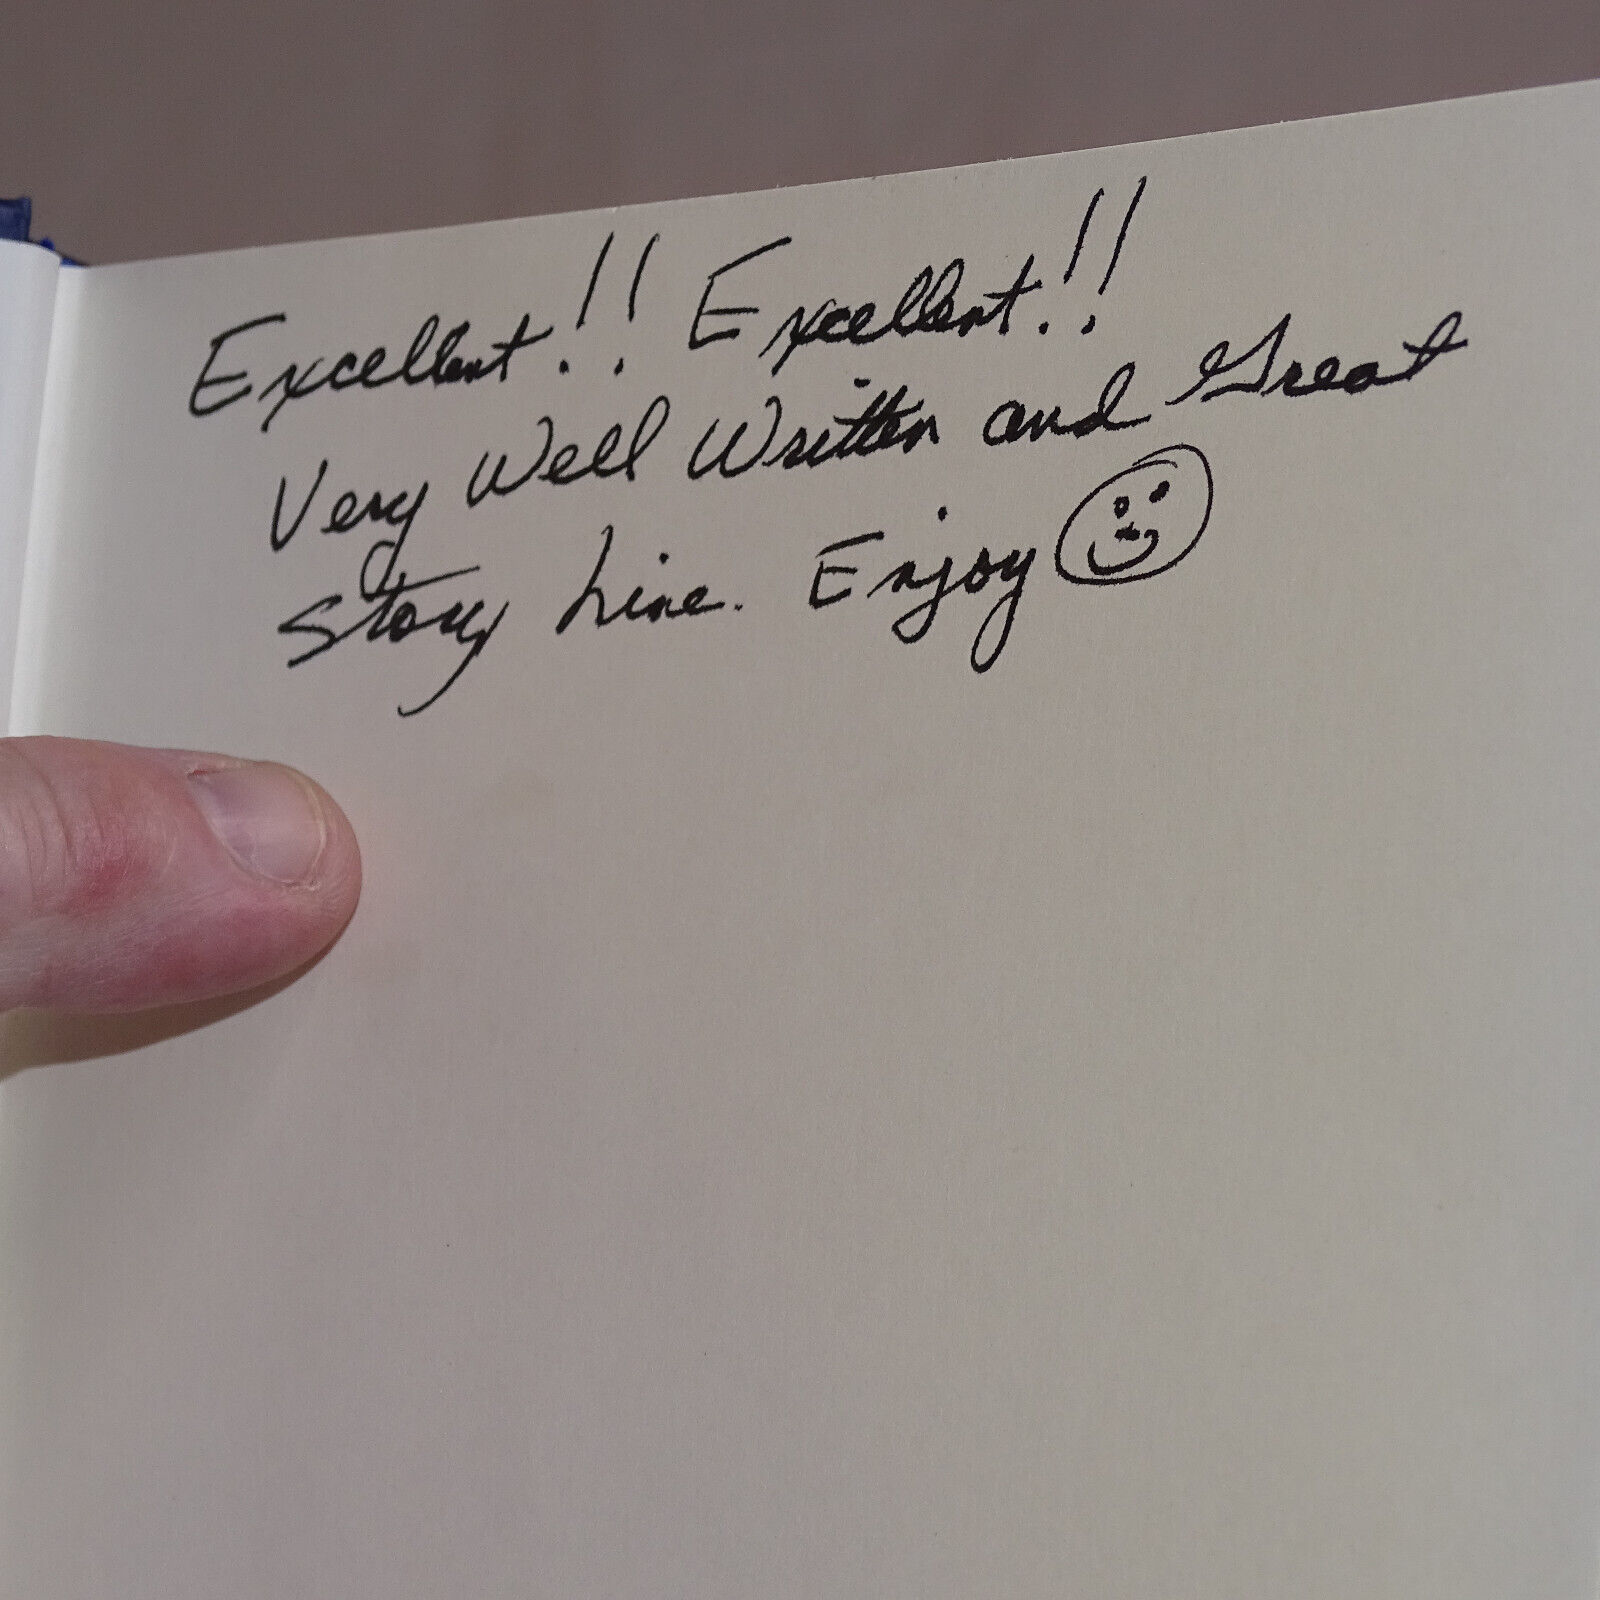 Excellent!! Excellent!!
Very Well Written and Great
Story Line. Enjoy